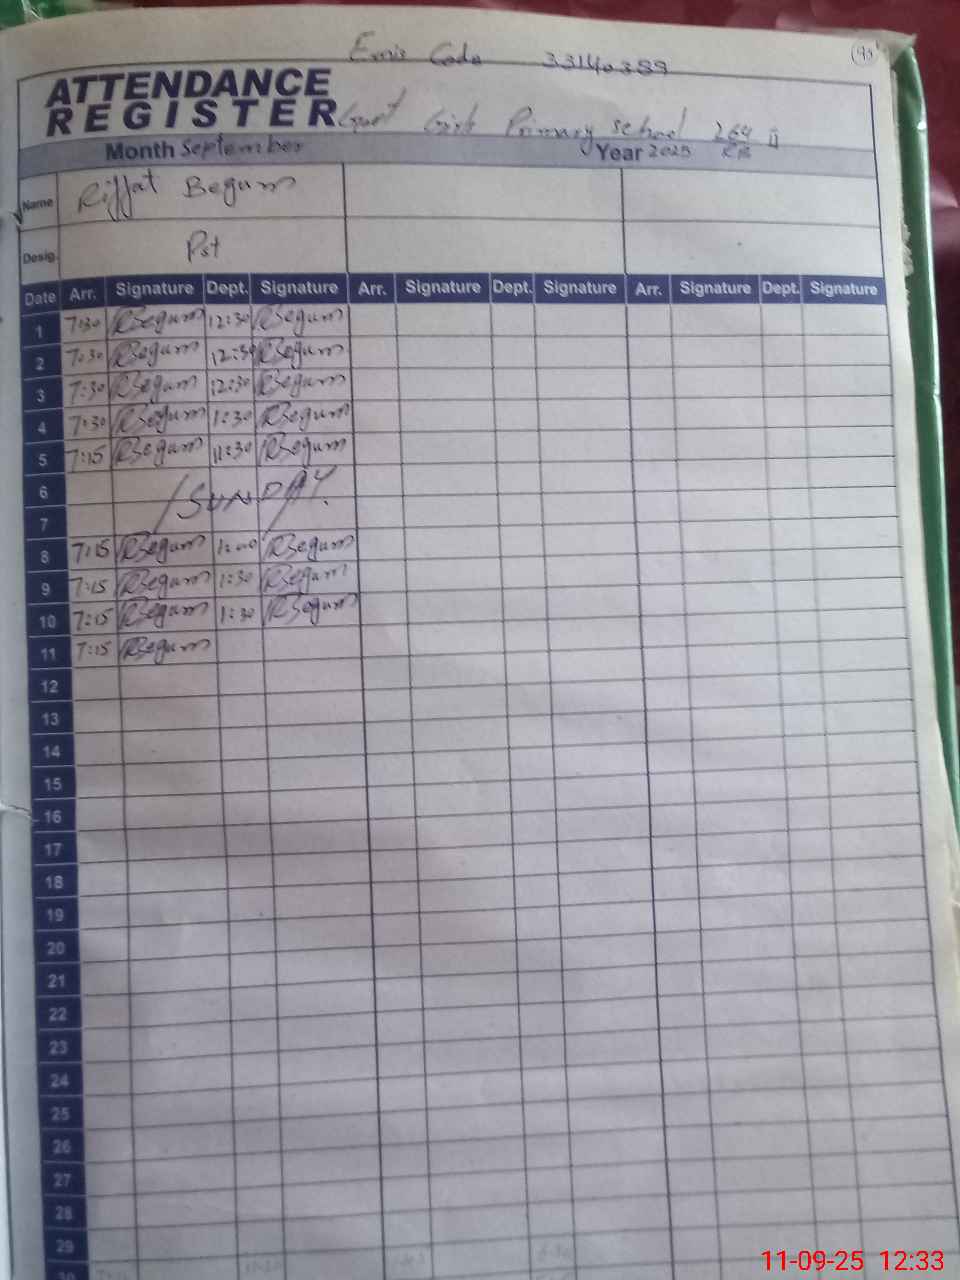 Emis Code 33140389
90
ATTENDANCE
REGISTER Govt Girls Primary school 264 RB II
Month September Year 2025
Name Riffat Begum
Desig. Pst
Date Arr. Signature Dept. Signature Arr. Signature Dept. Signature Arr. Signature Dept. Signature
1 7:30 RBegum 12:30 RBegum
2 7:30 RBegum 12:30 RBegum
3 7:30 RBegum 12:30 RBegum
4 7:30 RBegum 1:30 RBegum
5 7:15 RBegum 11:30 RBegum
6
SUNDAY
7
8 7:15 RBegum RBegum
9 7:15 RBegum 1:30 RBegum
10 7:15 RBegum 1:30 RBegum
11 7:15 RBegum
12
13
14
15
16
17
18
19
20
21
22
23
24
25
26
27
28
29
30
11-09-25 12:33